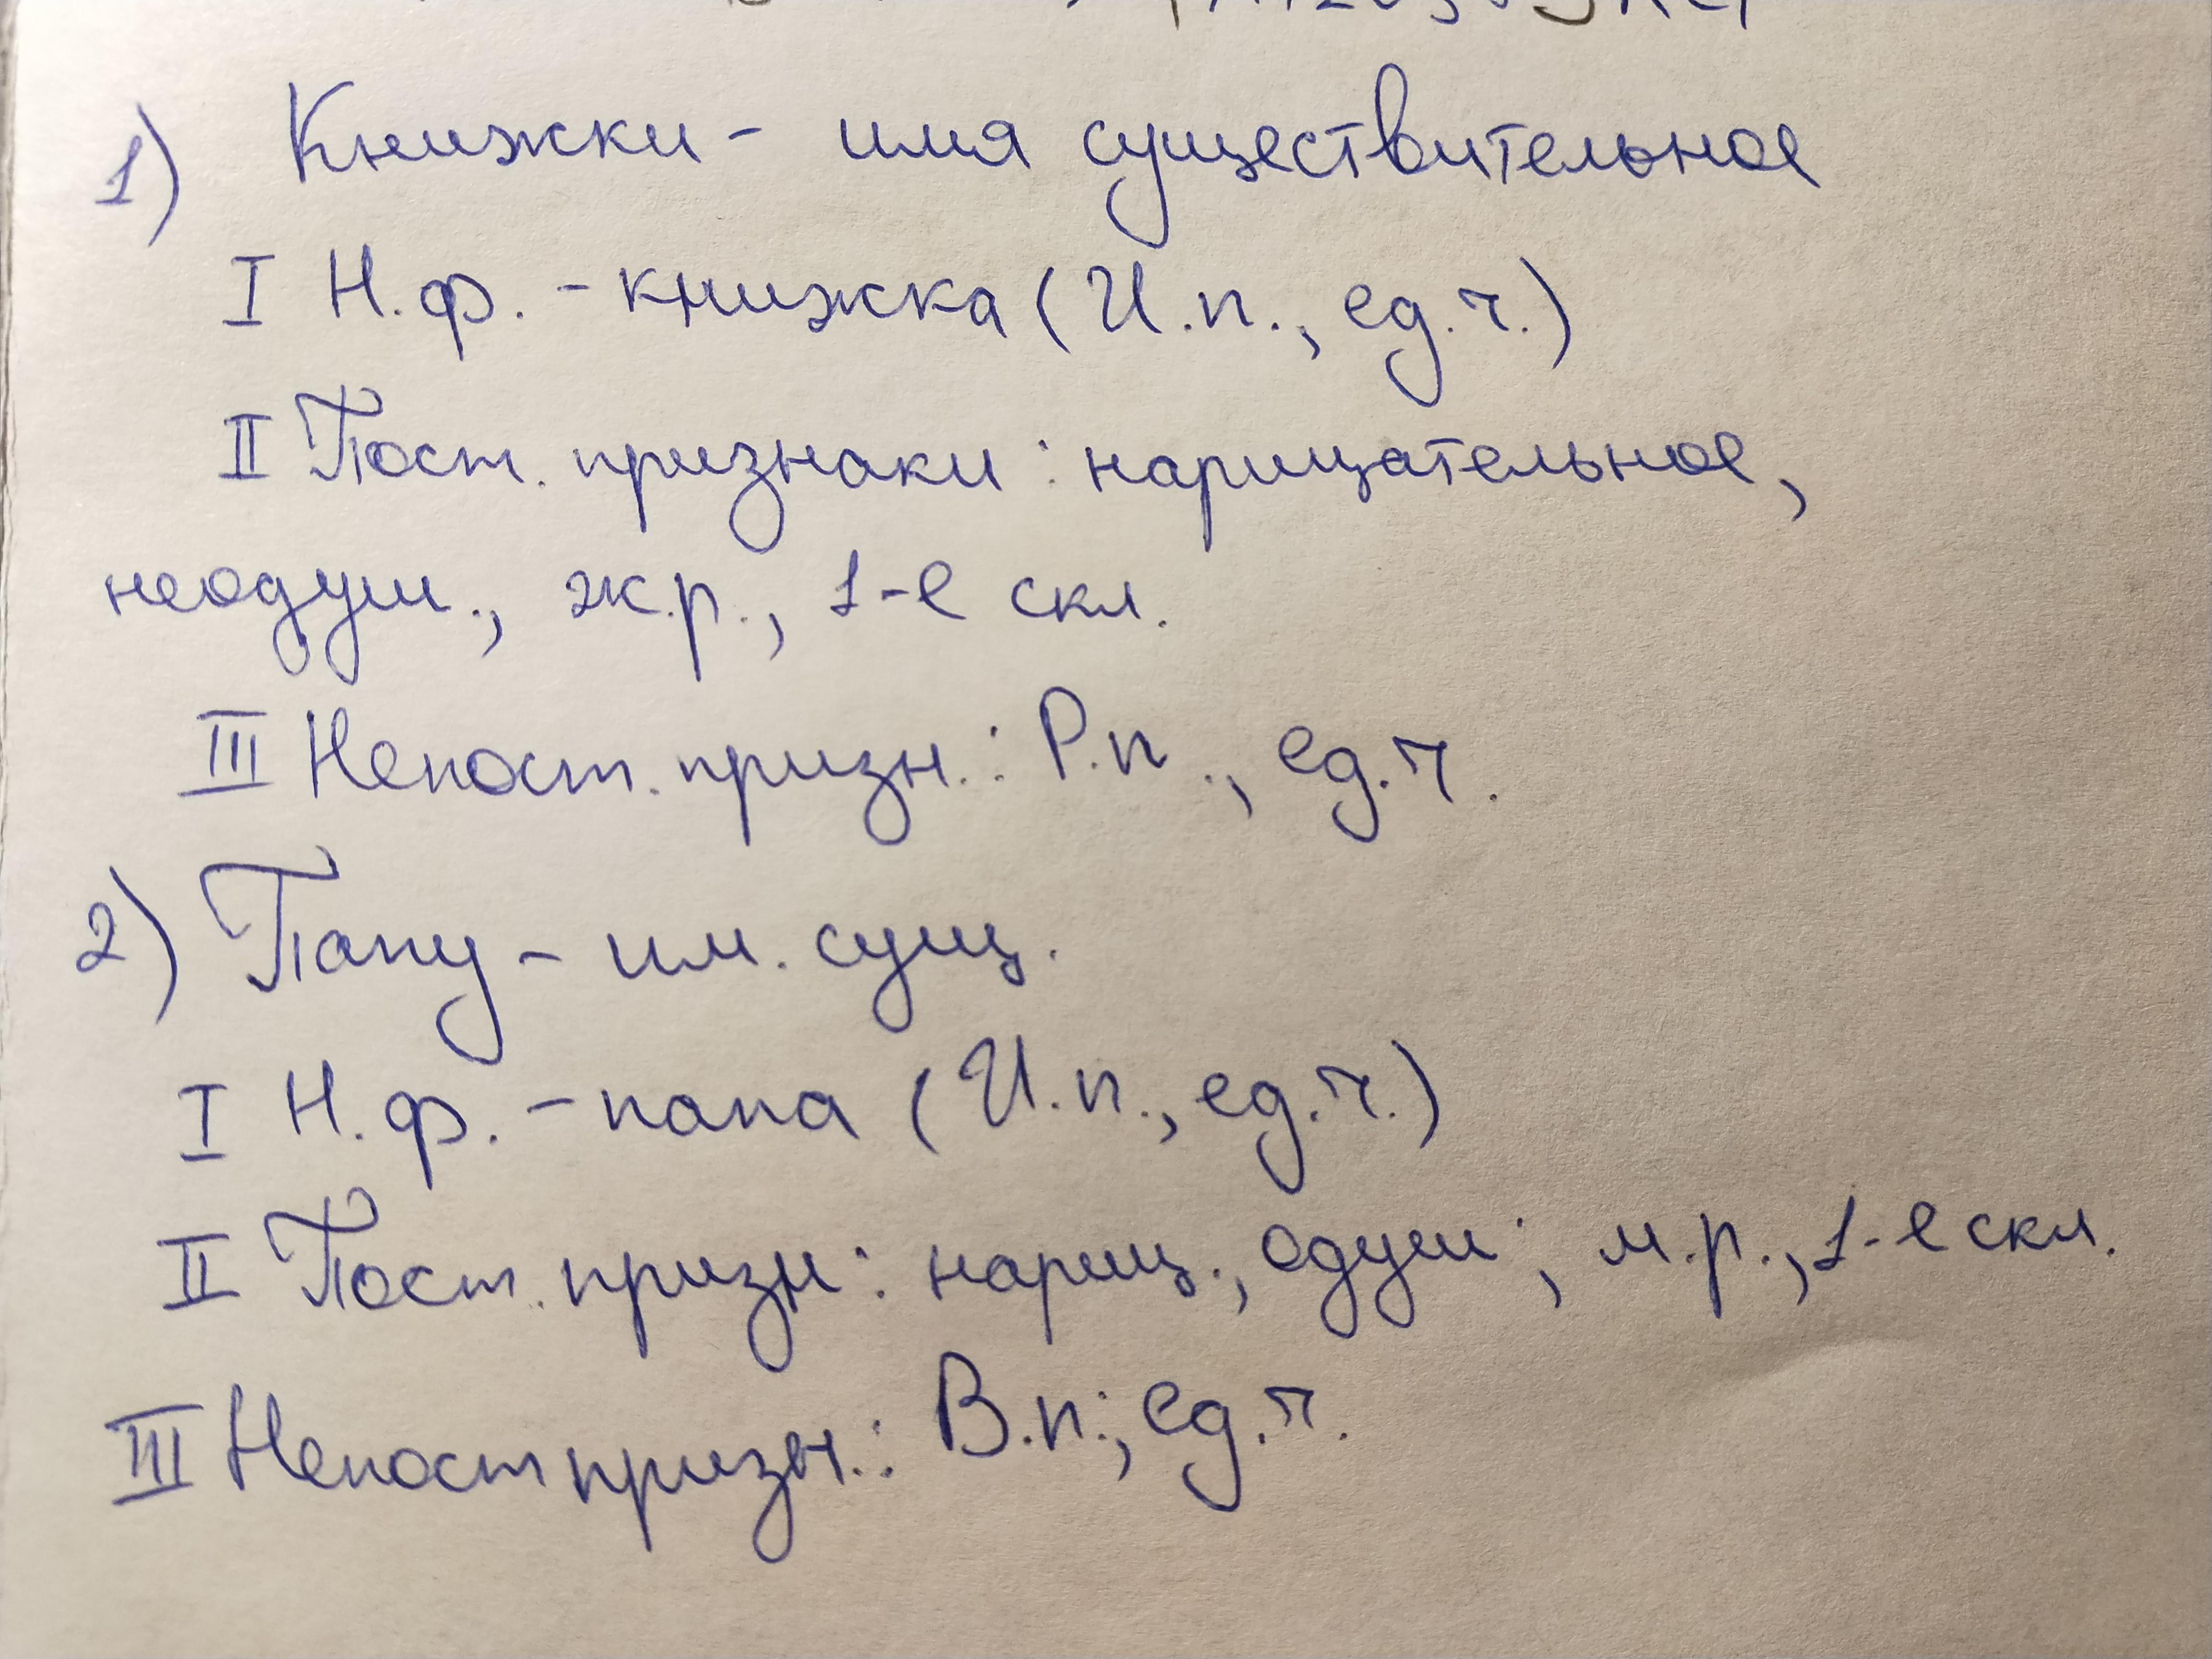 1) Книжки - имя существительное
I Н.ф. - книжка (И.п., ед.ч.)
II Пост. признаки: нарицательное,
неодуш., ж.р., 1-е скл.
III Непост. призн.: Р.п., ед.ч.
2) Папу - им. сущ.
I Н.ф. - папа (И.п., ед.ч.)
II Пост. призн: нариц., одуш., м.р., 1-е скл.
III Непост призн.: В.п., ед.ч.